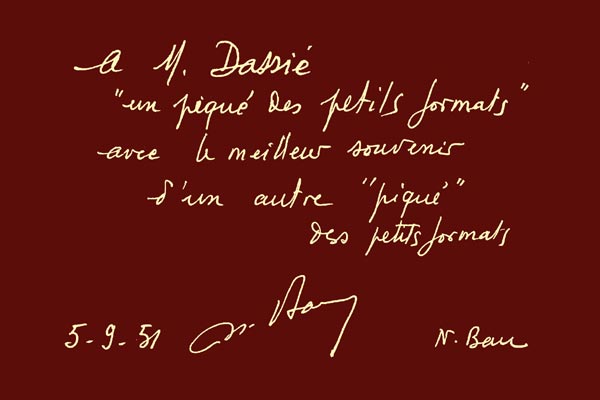 A M. Dassié
"un piqué des petits formats"
avec le meilleur souvenir
d'un autre "piqué"
des petits formats
5-9-51
N. Bau